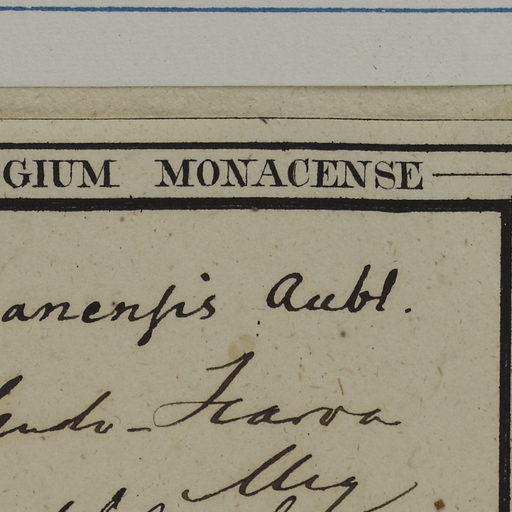 GIUM MONACENSE
anensis Aubl.
eudo-Icaroa
Miq